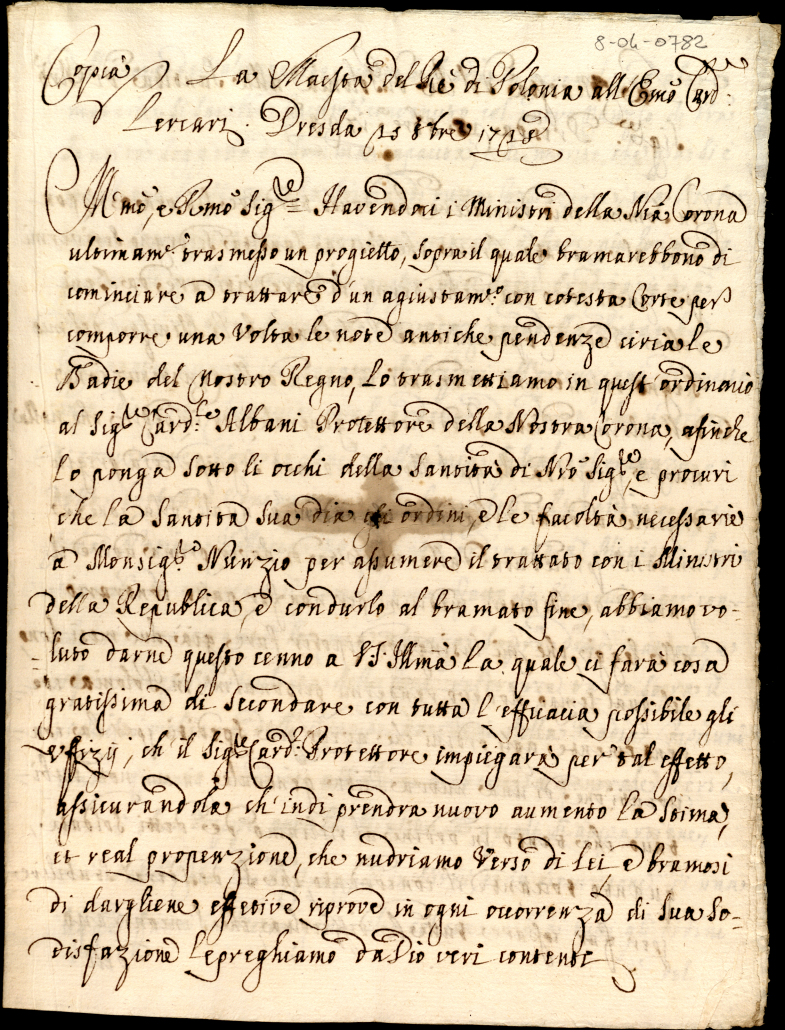 8-04-0782
Copia La Maestà del Rè di Polonia all Emo Card:
Lercari. Dresda 15 8bre 1728
Mmo, e Rmo Sigre Havendoci i Ministri della Nra Corona
ultimamte trasmesso un progietto, sopra il quale bramarebbono di
cominciare a trattare d'un agiustamto con cotesta Corte per
comporre una volta le note antiche pendenze circa le
Badie del Nostro Regno, Lo trasmettiamo in quest'ordinario
al Sigre Cardle Albani Protettore della Nostra Corona, afinche
lo ponga sotto li occhi della Santità di Nro Sigre, e procuri
che la Santità Sua dia gli ordini, e le facoltà necessarie
a Monsigre Nunzio per assumere il trattato con i Ministri
della Republica, e condurlo al bramato fine, abbiamo vo-
luto darne questo cenno a VS. Illma la quale ci farà cosa
gratissima di secondare con tutta l'efficacia possibile gli
uffizij, ch il Sigre Cardl Protettore impiegarà per tal effetto,
assicurandola ch'indi prendra nuovo aumento la stima,
et real propenzione, che nudriamo verso di lei, e bramosi
di dargliene effettive riprove in ogni occorrenza di sua so-
disfazione le preghiamo da Dio veri contente